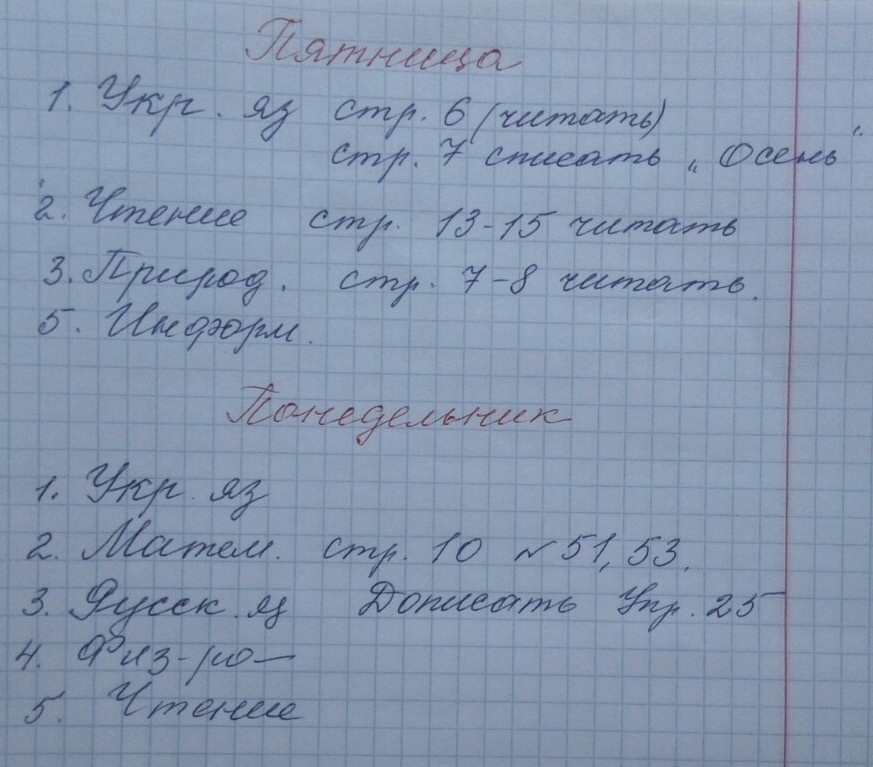 Пятница
1. Укр. яз стр. 6 (читать)
стр. 7 списать „Осень"
2. Чтение стр. 13-15 читать
3. Природ. стр. 7-8 читать.
5. Информ.
Понедельник
1. Укр. яз
2. Матем. стр. 10 № 51, 53.
3. Русск. яз Дописать Упр. 25
4. Физ-ра
5. Чтение